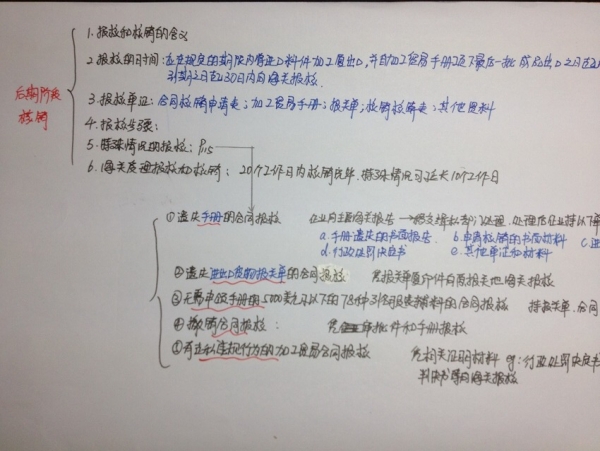 后期阶段
核销
1. 报核和核销的含义
2. 报核的时间: 应在规定的期限内将进口料件加工复出口,并自加工贸易手册项下最后一批成品出口之日
日起30日内向海关报核.
3. 报核单证: 合同核销申请表; 加工贸易手册; 报关单; 核销核算表; 其他资料
4. 报核步骤:
5. 特殊情况的报核: P115
6. 海关受理报核和核销: 20个工作日内核销完毕. 特殊情况可延长10个工作日
① 遗失手册的合同报核 企业向主管海关报告 → 移交缉私部门处理. 处理后企业持以下单
a. 手册遗失的书面报告. b. 申请核销的书面材料 c.
d. 行政处罚决定书 e. 其他单证和材料
② 遗失进出口货物报关单的合同报核 凭报关单复印件向原报关地海关报核
③ 无需申领手册的5000美元及以下的78种列名服装辅料的合同报核 持报关单、合同
④ 撤销合同报核: 凭审批件和手册报核
⑤ 有走私违规行为的加工贸易合同报核 凭相关证明材料 eg: 行政处罚决定书
判决书等向海关报核